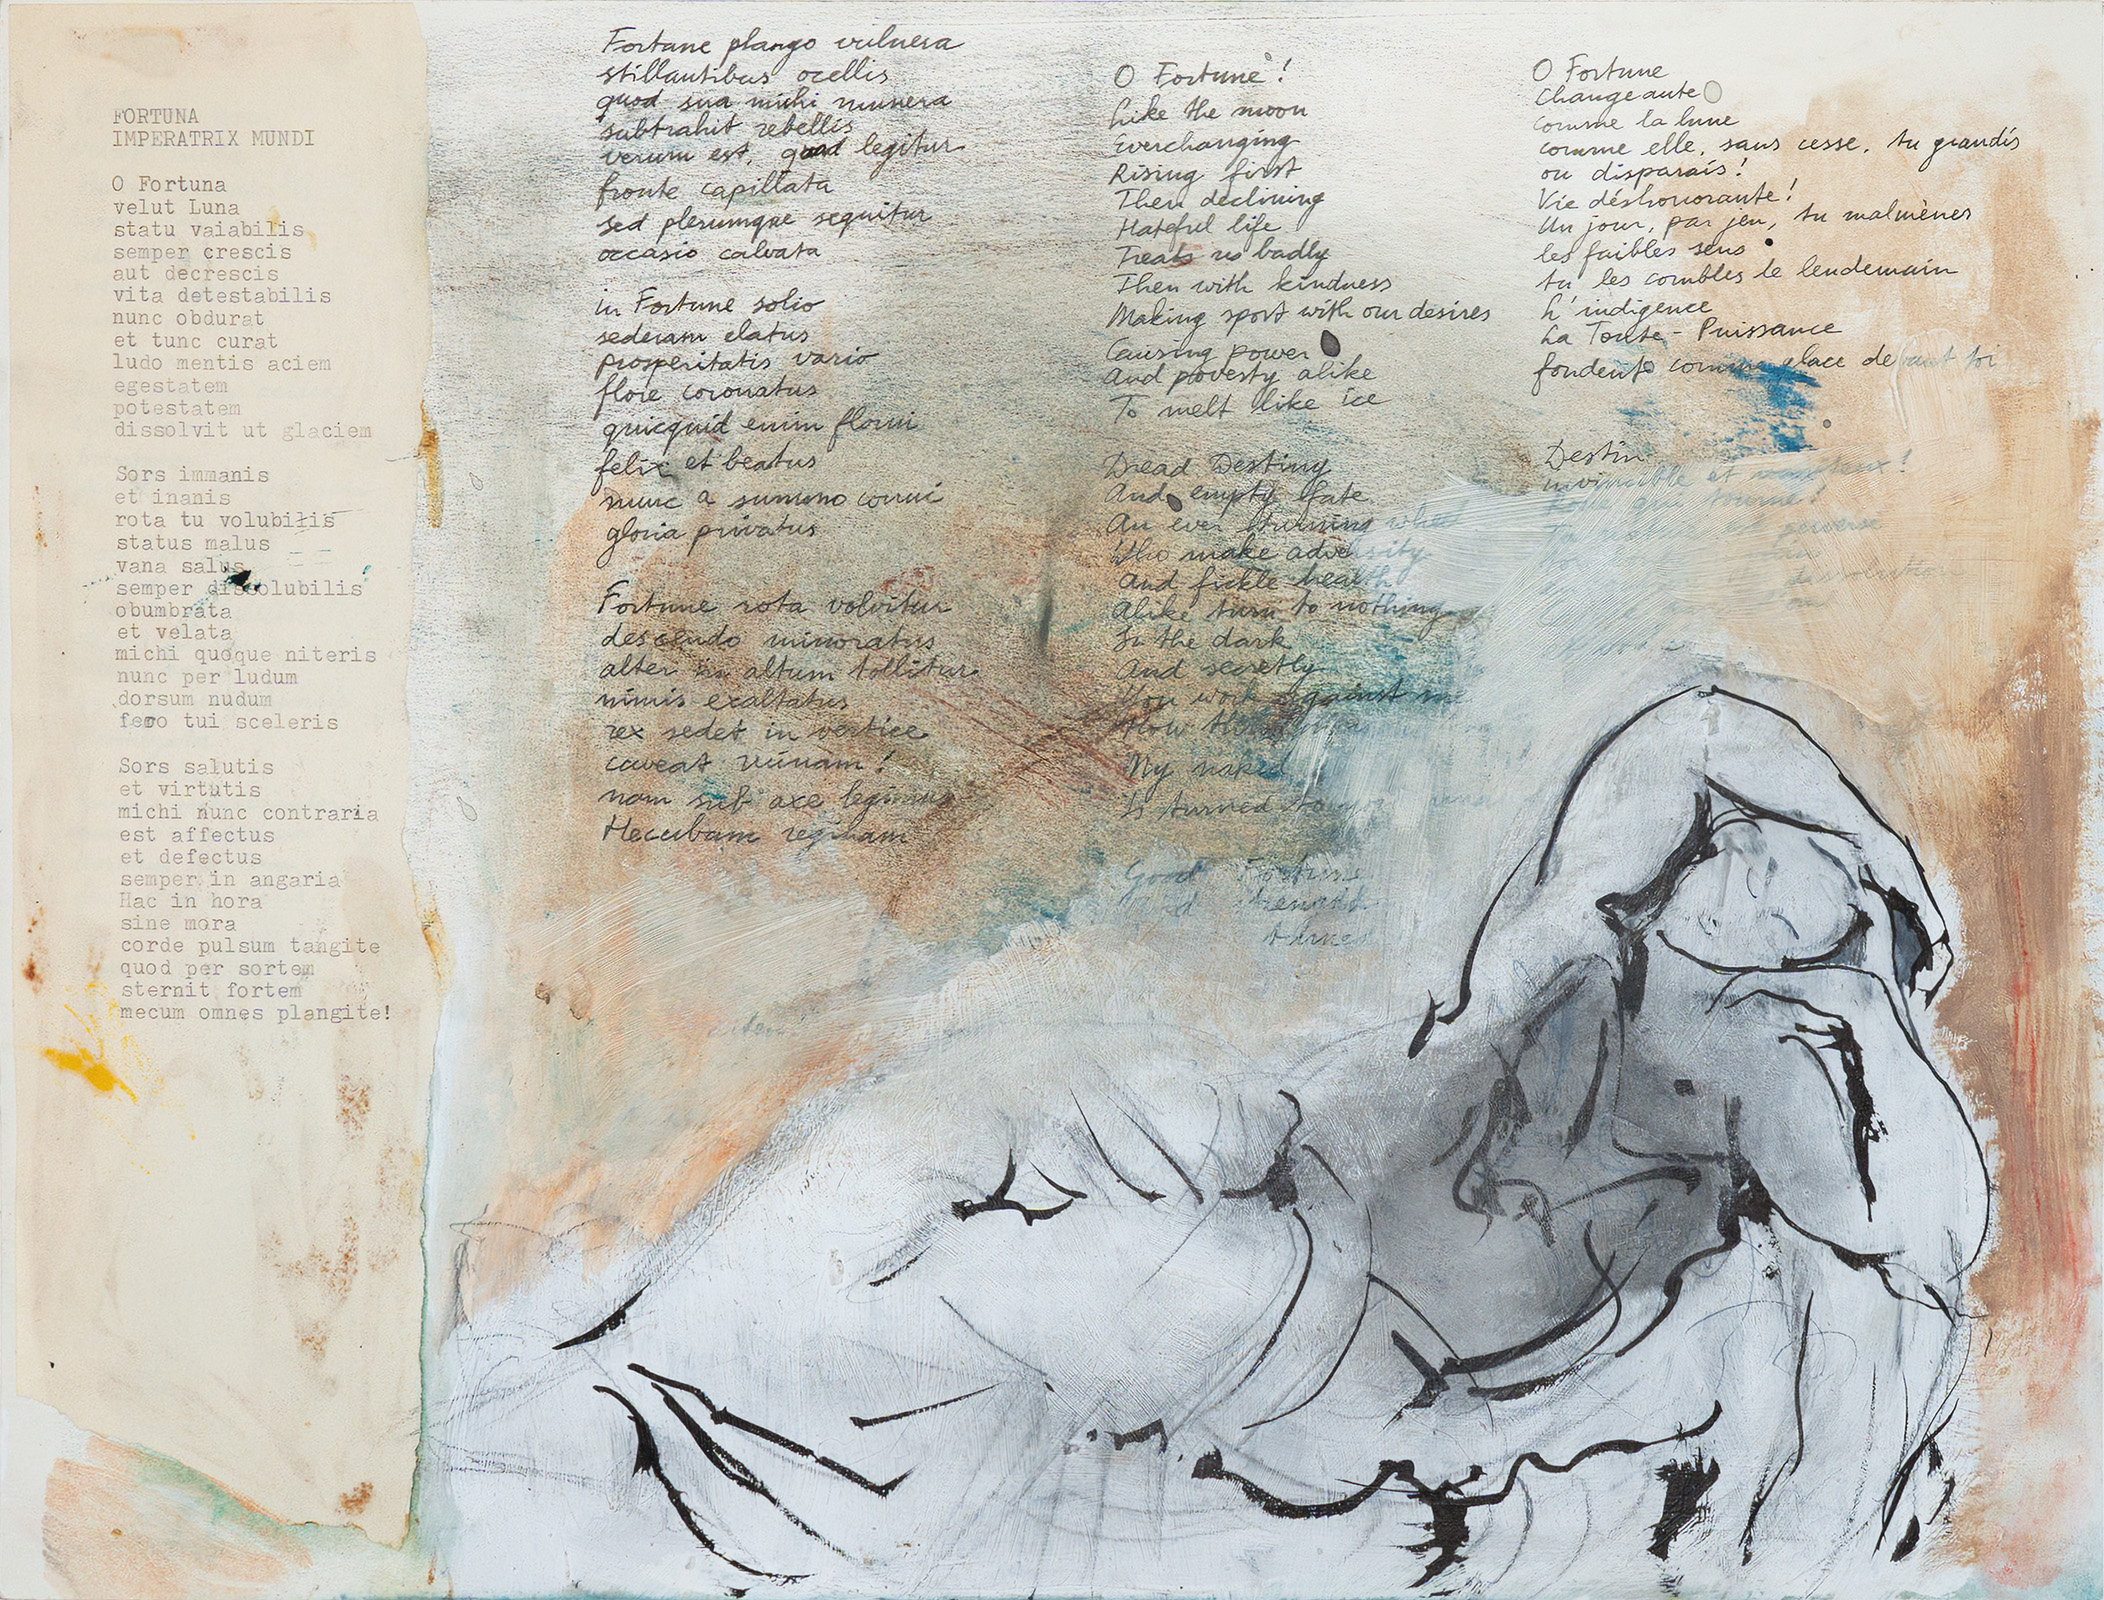 FORTUNA
IMPERATRIX MUNDI
O Fortuna
velut Luna
statu vaiabilis
semper crescis
aut decrescis
vita detestabilis
nunc obdurat
et tunc curat
ludo mentis aciem
egestatem
potestatem
dissolvit ut glaciem
Sors immanis
et inanis
rota tu volubilis
status malus
vana salus
semper dissolubilis
obumbrata
et velata
michi quoque niteris
nunc per ludum
dorsum nudum
fero tui sceleris
Sors salutis
et virtutis
michi nunc contraria
est affectus
et defectus
semper in angaria
Hac in hora
sine mora
corde pulsum tangite
quod per sortem
sternit fortem
mecum omnes plangite!
Fortune plango vulnera
stillantibus ocellis
quod sua michi munera
subtrahit rebellis
verum est, quod legitur
fronte capillata
sed plerumque sequitur
occasio calvata
in Fortune solio
sederam elatus
prosperitatis vario
flore coronatus
quicquid enim florui
felix et beatus
nunc a summo corrui
gloria privatus
Fortune rota volvitur
descendo minoratus
alter in altum tollitur
nimis exaltatus
rex sedet in vertice
caveat ruinam!
nam sub axe legimus
Hecubam reginam
O Fortune!
Like the moon
Everchanging
Rising first
Then declining
Hateful life
Treats us badly
Then with kindness
Making sport with our desires
Causing power
And poverty alike
To melt like ice
Dread Destiny
And empty fate
An ever turning wheel
Who make adversity
And fickle health
Alike turn to nothing
In the dark
And secretly
You work against me
How
My naked
Is turned to your
Good Fortune
strength
O Fortune
Changeante
comme la lune
comme elle, sans cesse, tu grandis
ou disparais!
Vie déshonorante!
Un jour, par jeu, tu malmènes
les faibles sens
tu les combles le lendemain
L'indigence
La Toute-Puissance
fondent comme glace devant toi
Destin
invincible et
qui tourne!
perverse
dissolution